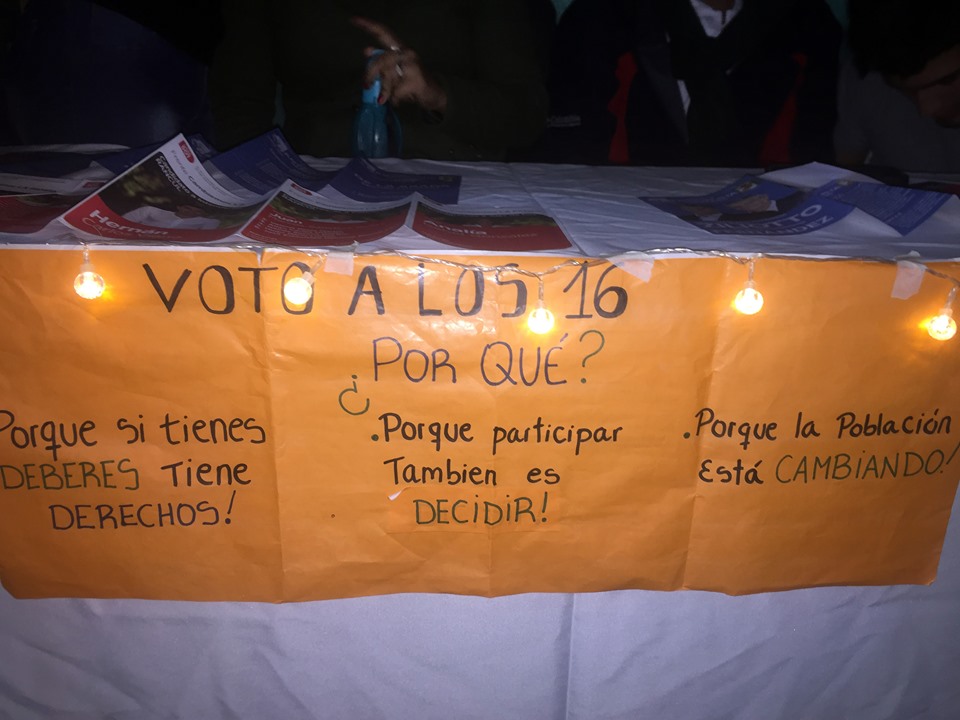 Hernán
Juan
Analía
VOTO A LOS 16
¿POR QUÉ?
Porque si tienes
DEBERES Tiene
DERECHOS!
.Porque participar
Tambien es
DECIDIR!
.Porque la Población
Está CAMBIANDO!